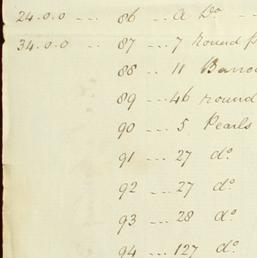 24.0.0 -- 86 -- a do --
34.0.0 -- 87 --- 7 round p
88 -- 11 Baro
89 -- 46 round
90 --- 5 Pearls
91 --- 27 do
92 --- 27 do
93 --- 28 do
94 --- 127 do